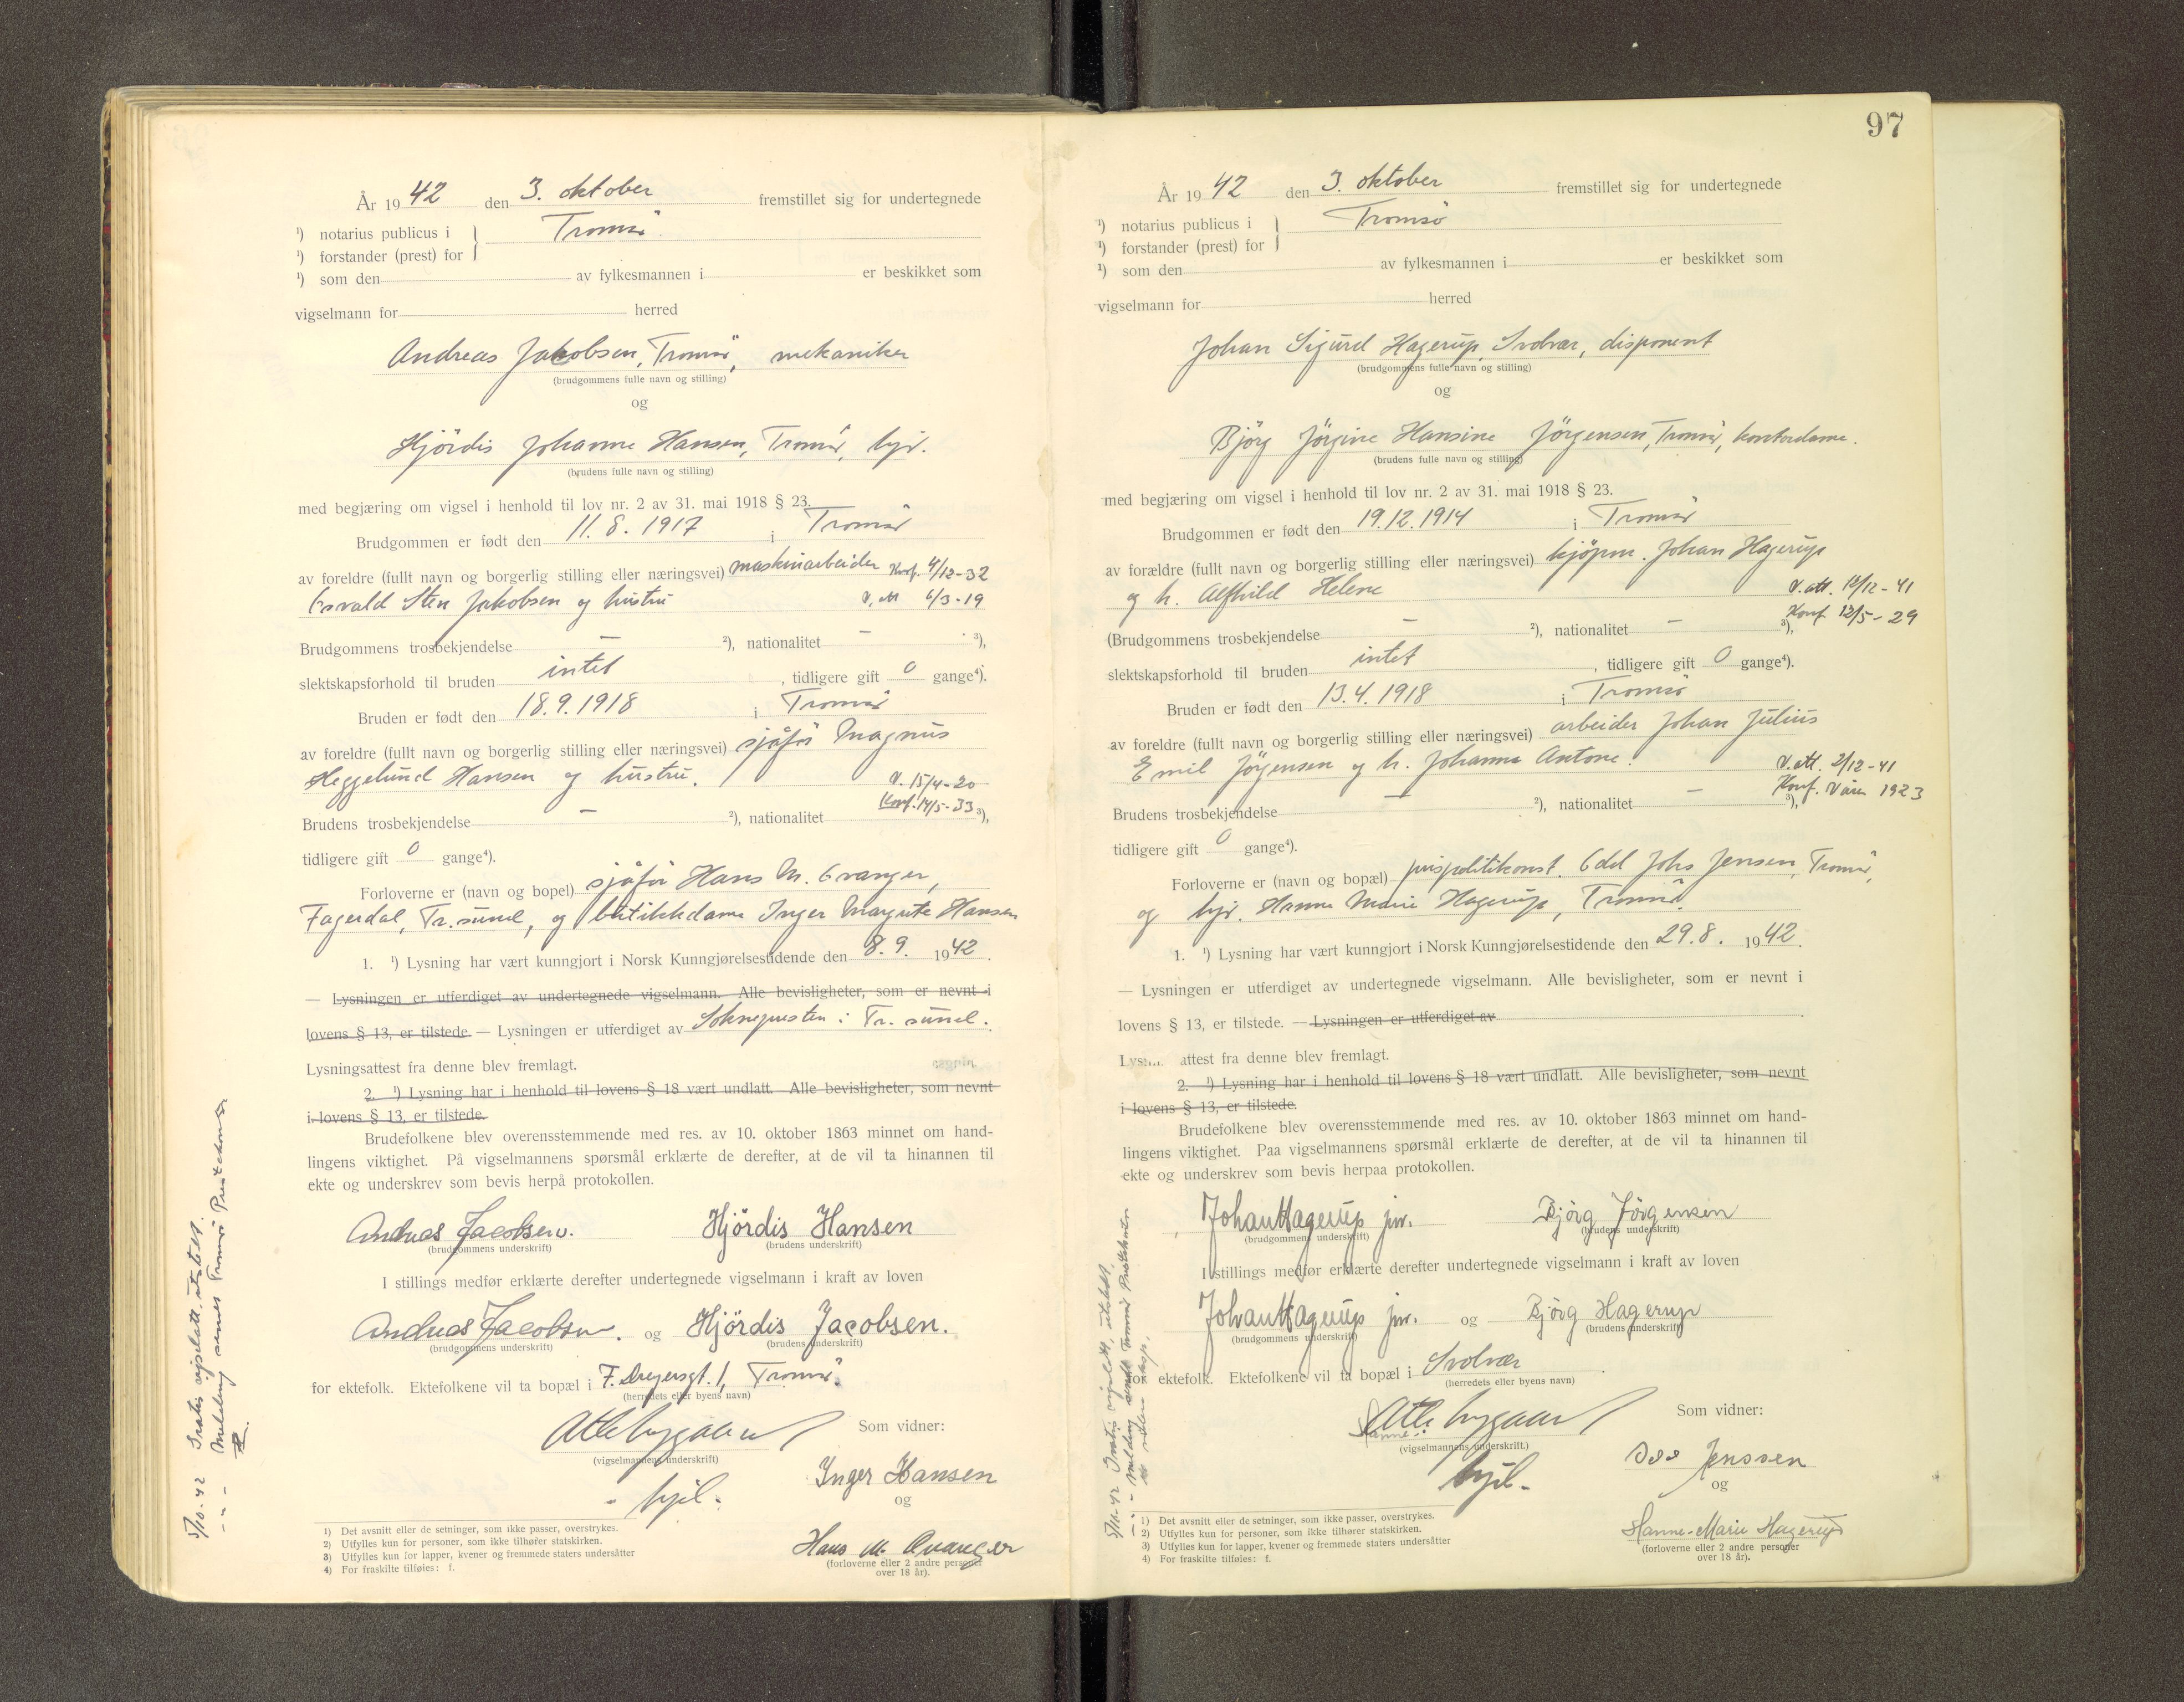 År 1942 den 3. oktober fremstillet sig for undertegnede
¹) notarius publicus i } Tromsö
¹) forstander (prest) for
¹) som den av fylkesmannen i er beskikket som
vigselmann for herred
Andreas Jakobsen, Tromsö, mekaniker
(brudgommens fulle navn og stilling)
og
Hjördis Johanne Hansen, Tromsö, hjv.
(brudens fulle navn og stilling)
med begjæring om vigsel i henhold til lov nr. 2 av 31. mai 1918 § 23.
Brudgommen er født den 11.8.1917 i Tromsö
av foreldre (fullt navn og borgerlig stilling eller næringsvei) maskinarbeider Konf. 4/12-32
Osvald Sten Jakobsen og hustru V. att 6/3-19
Brudgommens trosbekjendelse — ²), nationalitet — ³),
slektskapsforhold til bruden intet, tidligere gift 0 gange⁴).
Bruden er født den 18.9.1918 i Tromsö
av foreldre (fullt navn og borgerlig stilling eller næringsvei) sjåför Magnus
Heggelund Hansen og hustru. V. 15/4-20
Konf. 14/5-33
Brudens trosbekjendelse — ²), nationalitet ³),
tidligere gift 0 gange⁴).
Forloverne er (navn og bopel) sjåför Hans M. Qvanger,
Fagerdal, Tr.sund, og butikkdame Inger Margrete Hansen
1. ¹) Lysning har vært kunngjort i Norsk Kunngjørelsestidende den 8.9. 1942.
— Lysningen er utferdiget av undertegnede vigselmann. Alle bevisligheter, som er nevnt i
lovens § 13, er tilstede. — Lysningen er utferdiget av Sokneprestn i Tr. sund.
Lysningsattest fra denne blev fremlagt.
2. ¹) Lysning har i henhold til lovens § 18 vært undlatt. Alle bevisligheter, som nevnt
i lovens § 13, er tilstede.
Brudefolkene blev overensstemmende med res. av 10. oktober 1863 minnet om hand-
lingens viktighet. På vigselmannens spørsmål erklærte de derefter, at de vil ta hinannen til
ekte og underskrev som bevis herpå protokollen.
Andreas Jacobsen. Hjördis Hansen
(brudgommens underskrift) (brudens underskrift)
I stillings medfør erklærte derefter undertegnede vigselmann i kraft av loven
Andreas Jacobsen. og Hjördis Jacobsen.
(brudgommens underskrift) (brudens underskrift)
for ektefolk. Ektefolkene vil ta bopæl i F. Dreyersgt. 1, Tromsö.
(herredets eller byens navn)
Som vidner:
(vigselmannens underskrift)
Inger Hansen
og
Hans M. Qvanger
(forloverne eller 2 andre personer
over 18 år).
1) Det avsnitt eller de setninger, som ikke passer, overstrykes.
2) Utfylles kun for personer, som ikke tilhører statskirken.
3) Utfylles kun for lapper, kvener og fremmede staters undersåtter
4) For fraskilte tilføies: f.
5/10-42 Gratis vigselatt. utstedt.
- " - Melding sendt Tromsö Prestekontor.
97
År 1942 den 3. oktober fremstillet sig for undertegnede
¹) notarius publicus i } Tromsö
¹) forstander (prest) for
¹) som den av fylkesmannen i er beskikket som
vigselmann for herred
Johan Sigurd Hagerup, Svolvær, disponent
(brudgommens fulle navn og stilling)
og
Björg Jörgine Hansine Jörgensen, Tromsö, kontordame.
(brudens fulle navn og stilling)
med begjæring om vigsel i henhold til lov nr. 2 av 31. mai 1918 § 23.
Brudgommen er født den 19.12.1914 i Tromsö
av forældre (fullt navn og borgerlig stilling eller næringsvei) kjöpm. Johan Hagerup
og h. Alfhild Helene V. att. 12/12-41
Konf 12/5-29
(Brudgommens trosbekjendelse — ²), nationalitet — ³),
slektskapsforhold til bruden intet, tidligere gift 0 gange⁴).
Bruden er født den 13.4.1918 i Tromsö
av foreldre (fullt navn og borgerlig stilling eller næringsvei) arbeider Johan Julius
Emil Jörgensen og h. Johanna Antone. V. att. 2/12-41
Konf. Våren 1923
Brudens trosbekjendelse — ²), nationalitet — ³),
tidligere gift 0 gange⁴).
Forloverne er (navn og bopæl) prispolitikonst. Odd Johs Jensen, Tromsö,
og hjv. Hanna Marie Hagerup, Tromsö.
1. ¹) Lysning har vært kunngjort i Norsk Kunngjørelsestidende den 29.8. 1942.
— Lysningen er utferdiget av undertegnede vigselmann. Alle bevisligheter, som er nevnt i
lovens § 13, er tilstede. — Lysningen er utferdiget av
attest fra denne blev fremlagt.
2. ¹) Lysning har i henhold til lovens § 18 vært undlatt. Alle bevisligheter, som nevnt
i lovens § 13, er tilstede.
Brudefolkene blev overensstemmende med res. av 10. oktober 1863 minnet om hand-
lingens viktighet. Paa vigselmannens spørsmål erklærte de derefter, at de vil ta hinannen til
ekte og underskrev som bevis herpaa protokollen.
Johan Hagerup jnr. Björg Jörgensen
(brudgommens underskrift) (brudens underskrift)
I stillings medfør erklærte derefter undertegnede vigselmann i kraft av loven
Johan Hagerup jnr. og Björg Hagerup
(brudgommens underskrift) (brudens underskrift)
for ektefolk. Ektefolkene vil ta bopæl i Svolvær
(herredets eller byens navn)
Som vidner:
(vigselmannens underskrift.)
Jenssen
og
Hanne-Marie Hagerup
(forloverne eller 2 andre personer
over 18 år).
1) Det avsnitt eller de setninger, som ikke passer, overstrykes.
2) Utfylles kun for personer, som ikke tilhører statskirken.
3) Utfylles kun for lapper, kvener og fremmede staters undersåtter
4) For fraskilte tilføies: f.
5/10-42 Gratis utstedt.
- " - Melding sendt Tromsö Prestekontor